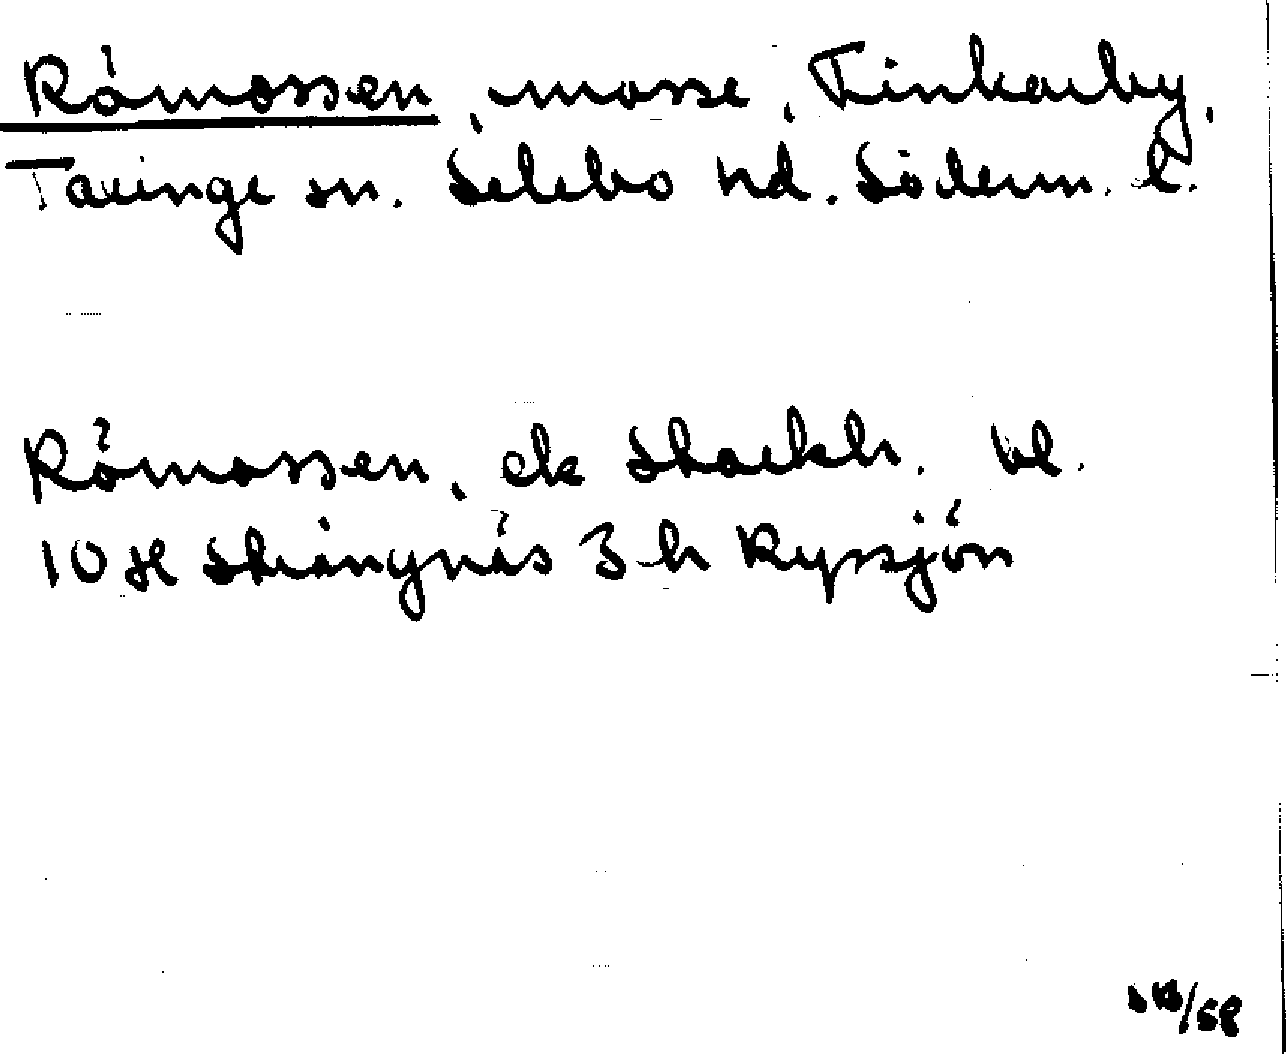 Råmossen, mosse, Finkarby,
Taxinge sn. Selebo hd. Söderm. l.
Råmossen, ek Stockh. bl.
10 H Strängnäs 3 h Ryssjön
/58